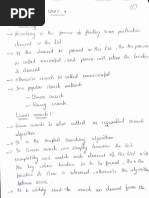 UNIT - 4
→ Searching is the process of finding some particular
element in the list
→ If the element is present in the list, the
is called successful and process will return the location
element
otherwise search is called unsuccessful
→ Two popular search methods
→ Linear search
→ Binary search
Linear search :
→ also called as sequential search
algorithm
→ It is the simplest searching algorithm
→ In linear search we simply traverse the
completely and match each element of the list with
the
location of item is returned otherwise the algorithm
return NULL
→ It is widely used to search an element from the